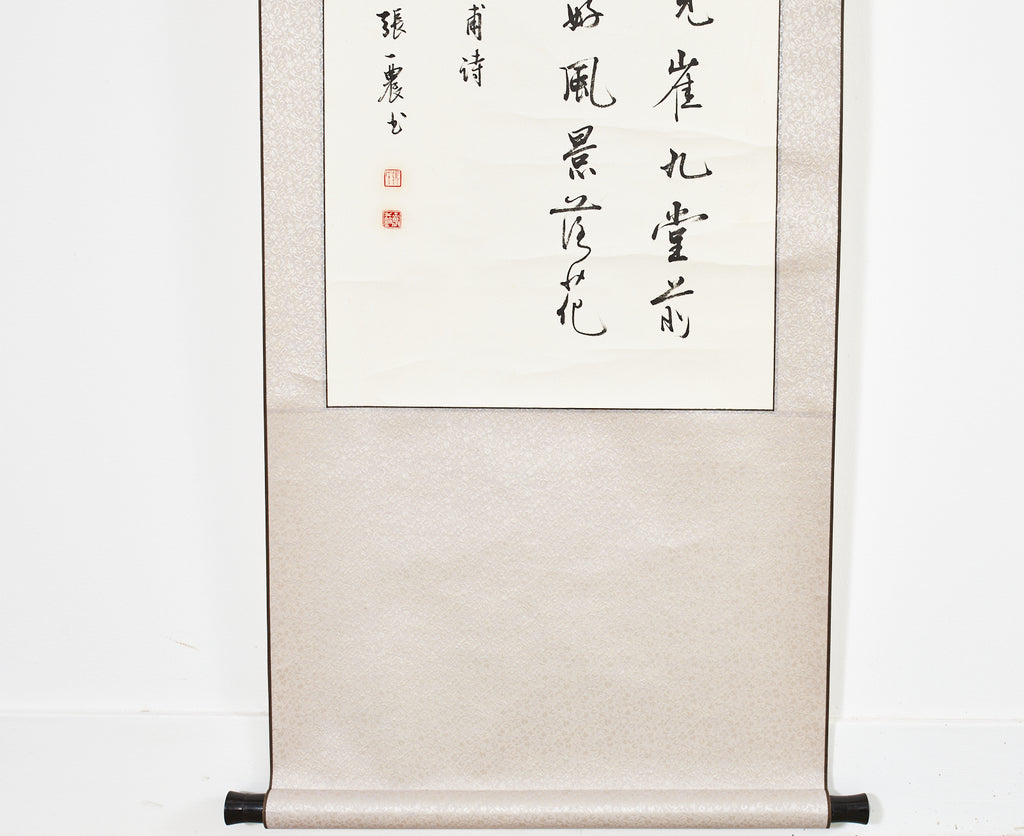 見崔九堂前
好風景落花
甫诗
張一農书